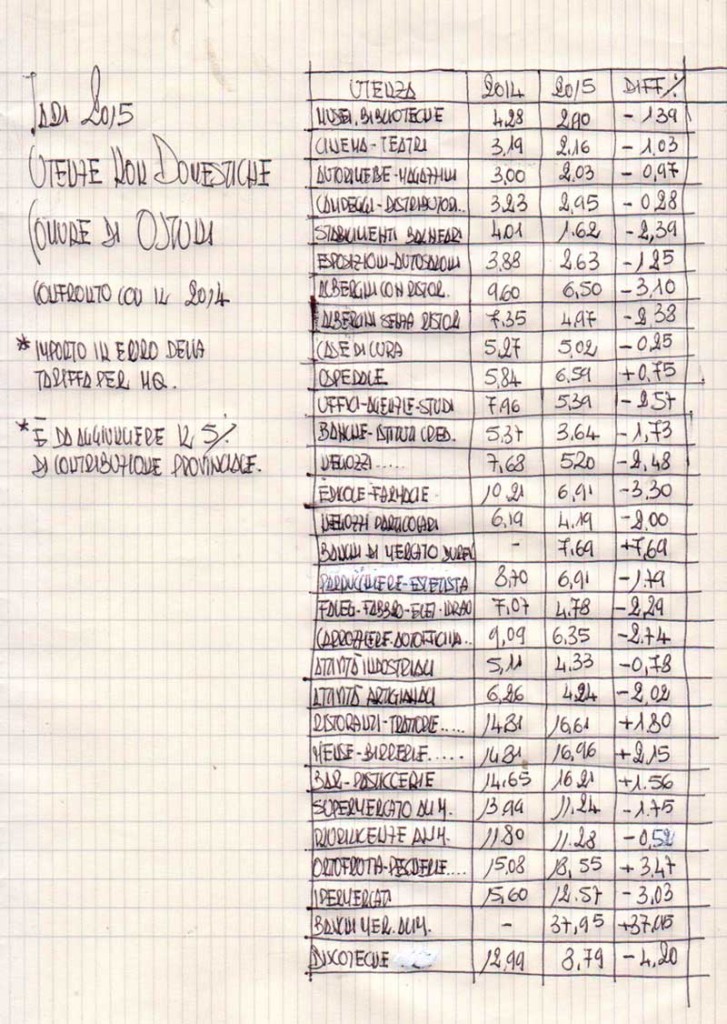 TARI 2015
UTENZE NON DOMESTICHE
COMUNE DI OSTUNI
CONFRONTO CON IL 2014
* IMPORTO IN EURO DELLA
TARIFFA PER MQ.
* È DA AGGIUNGERE IL 5%
DI CONTRIBUZIONE PROVINCIALE.
UTENZA 2014 2015 DIFF%
MUSEI, BIBLIOTECHE 4,28 2,90 - 1,39
CINEMA - TEATRI 3,19 2,16 - 1,03
AUTORIMESSE - MAGAZZINI 3,00 2,03 - 0,97
CAMPEGGI - DISTRIBUTORI.. 3,23 2,95 - 0,28
STABILIMENTI BALNEARI 4,01 1,62 - 2,39
ESPOSIZIONI - AUTOSALONI 3,88 2,63 - 1,25
ALBERGHI CON RISTOR. 9,60 6,50 - 3,10
ALBERGHI SENZA RISTOR 7,35 4,97 - 2,38
CASE DI CURA 5,27 5,02 - 0,25
OSPEDALE 5,84 6,59 +0,75
UFFICI - AGENZIE - STUDI 7,96 5,39 - 2,57
BANCHE - ISTITUTI CRED. 5,37 3,64 - 1,73
NEGOZI..... 7,68 5,20 - 2,48
EDICOLE - FARMACIE 10,21 6,91 - 3,30
NEGOZI PARTICOLARI 6,19 4,19 - 2,00
BANCHI DI MERCATO DUREV - 7,69 +7,69
PARRUCCHIERE - ESTETISTA 8,70 6,91 - 1,79
FALEG - FABBRO - ELET - IDRAU 7,07 4,78 - 2,29
CARROZZERIE - AUTOFFICINA.. 9,09 6,35 - 2,74
ATTIVITÀ INDUSTRIALI 5,11 4,33 - 0,78
ATTIVITÀ ARTIGIANALI 6,26 4,24 - 2,02
RISTORANTI - TRATTORIE..... 14,81 16,61 +1,80
MENSE - BIRRERIE..... 14,81 16,96 +2,15
BAR - PASTICCERIE 14,65 16,21 +1.56
SUPERMERCATO ALIM. 13,99 11,24 - 1.75
PLURILICENZE ALIM. 11,80 11.28 - 0,52
ORTOFRUTTA - PESCHERIE.... 15,08 18,55 + 3,47
IPERMERCATI 15,60 12.57 - 3,03
BANCHI MER. ALIM. - 37,95 +37,95
DISCOTECHE 12,99 8,79 - 4,20